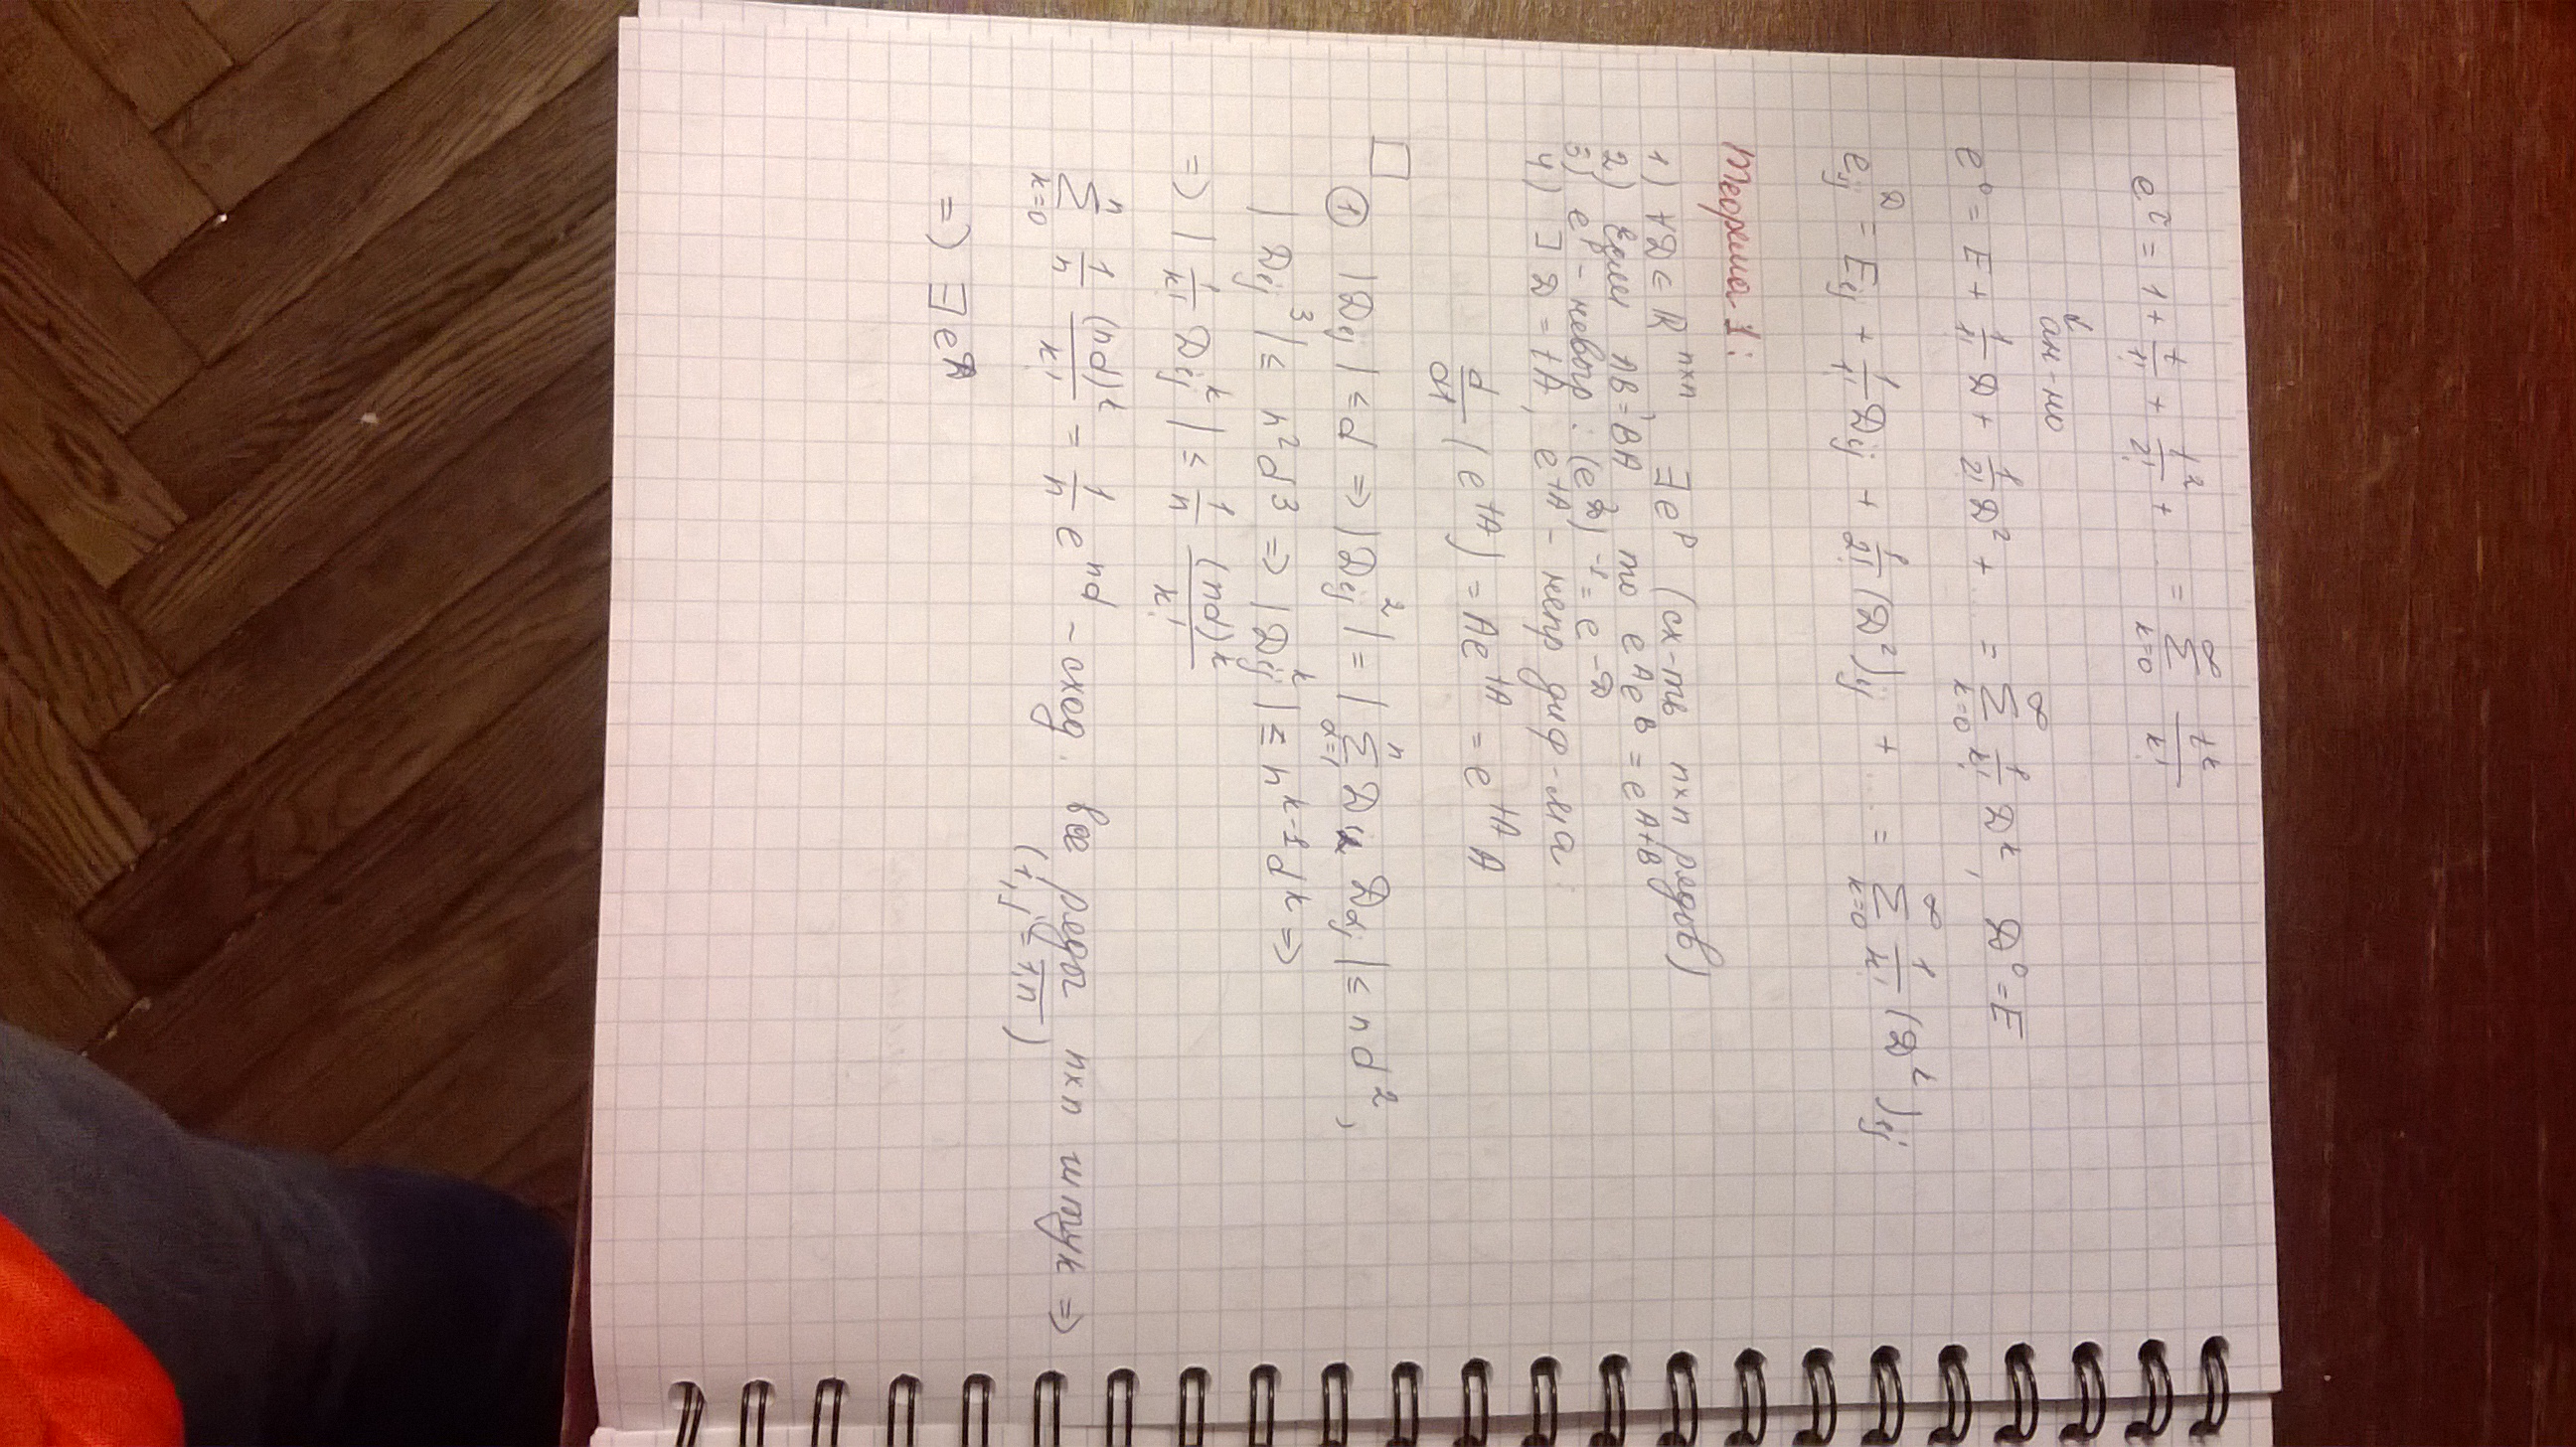 e^τ = 1 + t/1! + t²/2! + ... = ∑_{k=0}^{∞} t^k/k!
ан-но
e^D = E + 1/1! D + 1/2! D² + ... = ∑_{k=0}^{∞} 1/k! D^k, D⁰ = E
e_{ij}^D = E_{ij} + 1/1! D_{ij} + 1/2! (D²)_{ij} + ... = ∑_{k=0}^{∞} 1/k! (D^k)_{ij}
Теорема 1:
1) ∀D ∈ R^{n×n} ∃ e^D (сх-ть n×n рядов)
2) Если AB = BA, то e^A e^B = e^{A+B}
3) e^D - невыр: (e^D)^{-1} = e^{-D}
4) ∃ D = tA, e^{tA} - непр диф-ма:
d/dt (e^{tA}) = Ae^{tA} = e^{tA}A
□ ① |D_{ij}| ≤ d ⇒ |D_{ij}²| = |∑_{α=1}^{n} D_{iα} D_{αj}| ≤ nd²,
|D_{ij}³| ≤ n²d³ ⇒ |D_{ij}^k| ≤ n^{k-1}d^k ⇒
⇒ |1/k! D_{ij}^k| ≤ 1/n (nd)^k/k!
∑_{k=0}^{n} 1/n (nd)^k/k! = 1/n e^{nd} - сход. все ряды n×n штук ⇒
(i,j = 1,n)
⇒ ∃ e^D